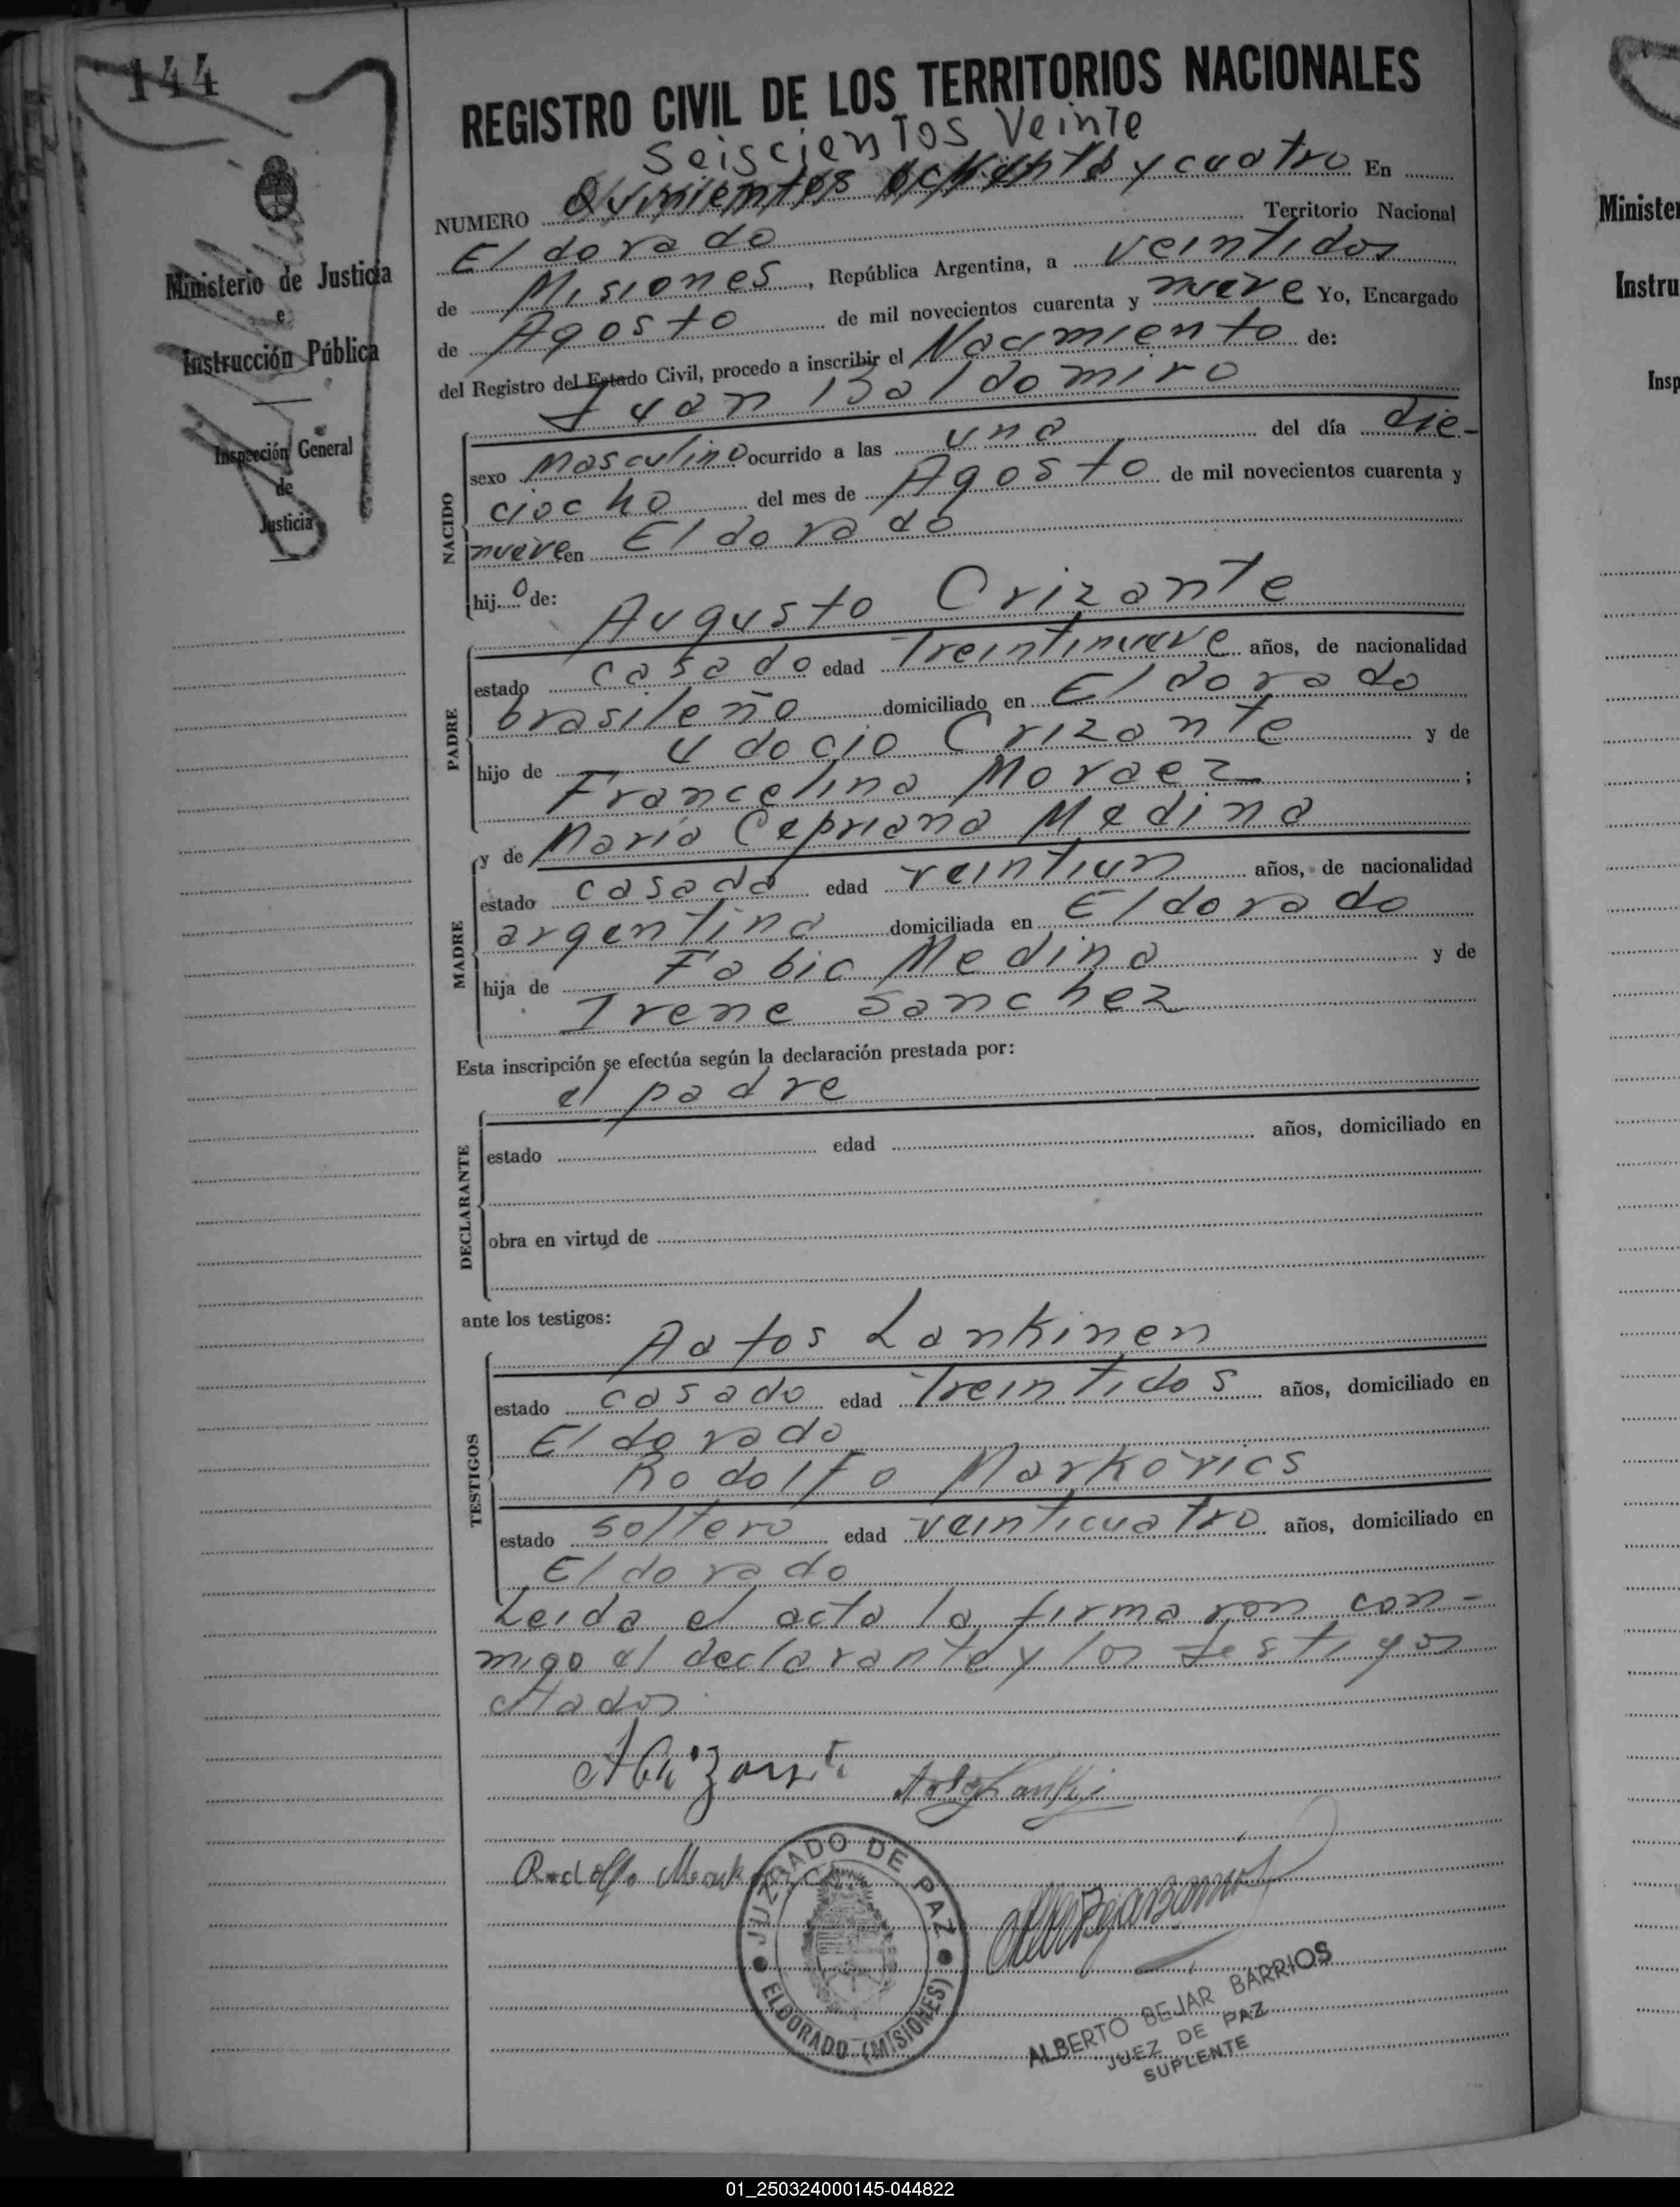 144
REGISTRO CIVIL DE LOS TERRITORIOS NACIONALES
Seiscientos Veinte
NUMERO Quinientos ochenta y cuatro En
Eldorado Territorio Nacional
de Misiones, República Argentina, a veintidos
de Agosto de mil novecientos cuarenta y nueve Yo, Encargado
del Registro del Estado Civil, procedo a inscribir el Nacimiento de:
Juan Baldomiro
Ministerio de Justicia
e
Instrucción Pública
Inspección General
de
Justicia
NACIDO
sexo Masculino ocurrido a las una del día die-
ciocho del mes de Agosto de mil novecientos cuarenta y
nueve en Eldorado
hijo de:
Augusto Crizante
PADRE
estado casado edad Treintinueve años, de nacionalidad
brasileño domiciliado en Eldorado
hijo de Udocio Crizante y de
Francelina Moraez ;
MADRE
y de María Cepriana Medina
estado casada edad veintiun años, de nacionalidad
argentina domiciliada en Eldorado
hija de Fabio Medina y de
Irene Sanchez
Esta inscripción se efectúa según la declaración prestada por:
el padre
DECLARANTE
estado edad años, domiciliado en
obra en virtud de
ante los testigos:
Aatos Lankinen
TESTIGOS
estado casado edad Treintidos años, domiciliado en
Eldorado
Rodolfo Markovics
estado soltero edad veinticuatro años, domiciliado en
Eldorado
Leida el acta la firmaron con-
migo el declarante y los testigos
citados.
Rodolfo
JUZGADO DE PAZ
ELDORADO (MISIONES)
ALBERTO BEJAR BARRIOS
JUEZ DE PAZ
SUPLENTE
Minister
Instru
Insp
01_250324000145-044822